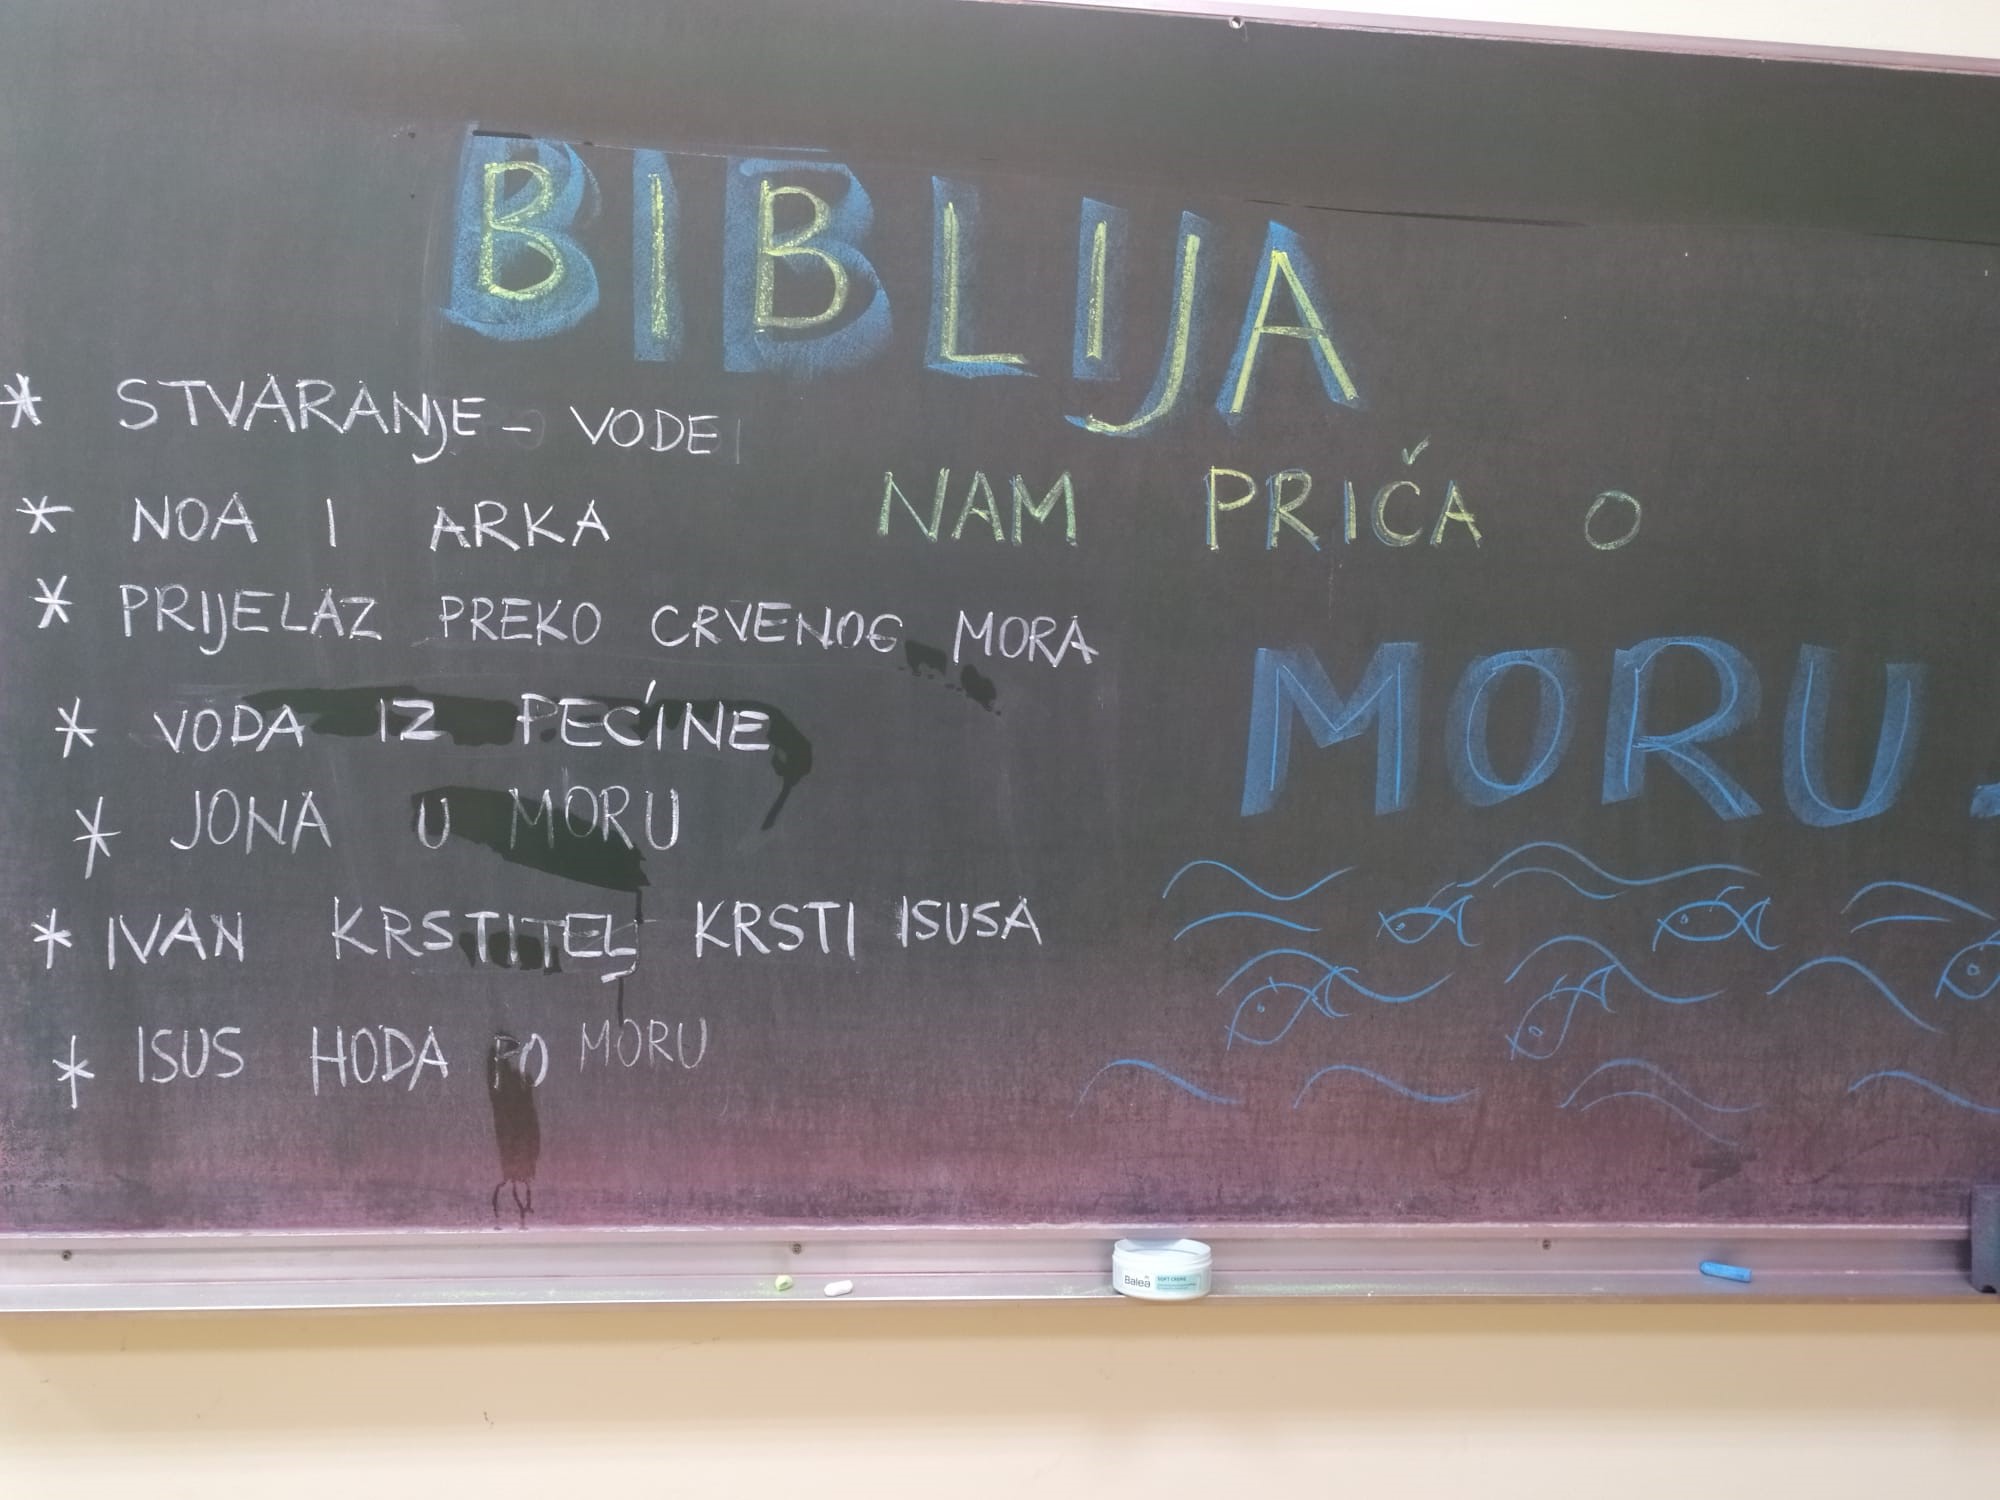 BIBLIJA
NAM PRIČA O
MORU.
* STVARANJE - VODE
* NOA I ARKA
* PRIJELAZ PREKO CRVENOG MORA
* VODA IZ PEĆINE
* JONA U MORU
* IVAN KRSTITELJ KRSTI ISUSA
* ISUS HODA PO MORU
Balea SOFT CREME